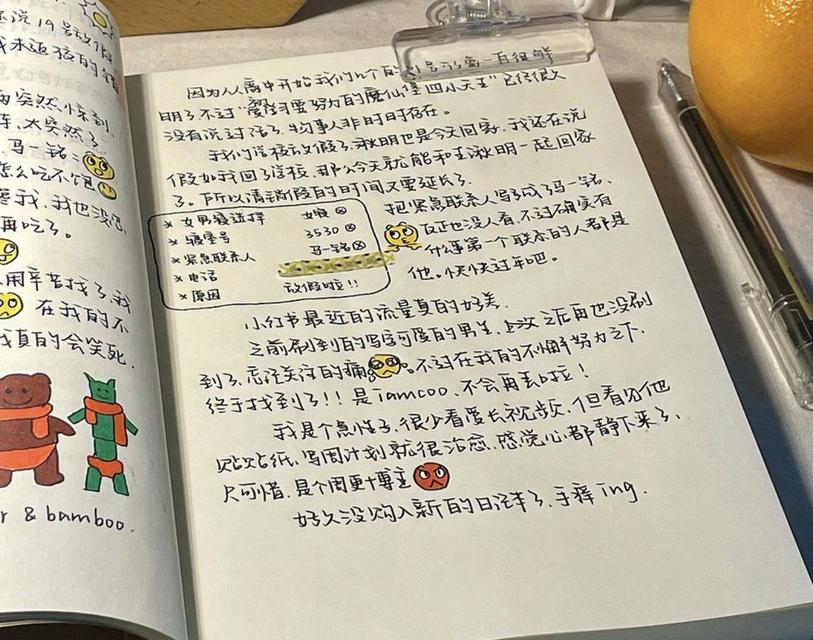 还说19号放假
我未返校的
突然惊到
太突然了
马一铭
怎么吃不饱
我,我也没
再吃了。
用辛苦找了我
在我的不
我真的会笑死.
r & bamboo.
因为从高中开始我们几个的
明了不过“要努力的魔仙堡四小天王”已经很久
没有说过话了.物事人非时时存在.
我们学校放假了.湫明也是今天回家.我还在说
假如我回了学校.那么今天就能和王湫明一起回家
了.所以清消假的时间又要延长了.
* 女男寝选择 女寝
* 寝室号 3530
* 紧急联系人 马一铭
* 电话
* 原因 放假啦!!
把紧急联系人写成了马一铭.
反正也没人看.不过确实有
什么事第一个联系的人都是
他.快快过年吧.
小红书最近的流量真的好差.
之前刷到的写可爱的男生.上次之后再也没刷
到了.忘记关注的痛 不过在我的不懈努力之下.
终于找到了!!是iamcoo.不会再丢啦!
我是个急性子.很少看爱长视频.但看见他
贴贴纸.写周计划就很治愈.感觉心都静下来了.
只可惜.是个周更博主
好久没购入新的日记本了.手痒ing.